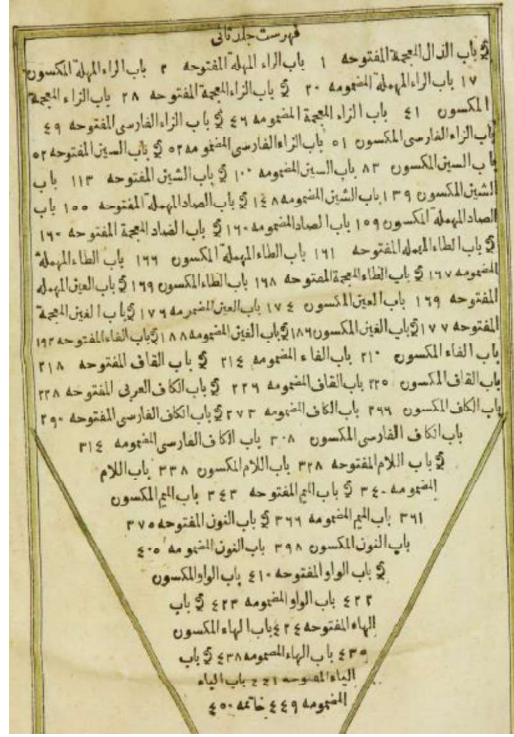 فهرست جلد ثانی
ﰲ باب الذال المعجمة المفتوحه ١ باب الراء المهملة المفتوحه ٢ باب الراء المهملة المكسون
١٧ باب الراء المهملة المضمومه ٢٠ ﰲ باب الزاء المعجمة المفتوحه ٢٨ باب الزاء المعجمة
المكسون ٤١ باب الزاء المعجمة المضمومه ٤٦ ﰲ باب الزاء الفارسى المفتوحه ٤٩
باب الزاء الفارسى المكسون ٥١ باب الزاء الفارسى المضمومه ٥٢ ﰲ باب السين المفتوحه ٥٢
باب السين المكسون ٨٣ باب السين المضمومه ١٠٠ ﰲ باب الشين المفتوحه ١١٣ باب
الشين المكسون ١٣٩ باب الشين المضمومه ١٤٨ ﰲ باب الصاد المهملة المفتوحه ١٥٥ باب
الصاد المهملة المكسون ١٥٩ باب الصاد المضمومه ١٦٠ ﰲ باب الضاد المعجمة المفتوحه ١٦٠
ﰲ باب الطاء المهمله المفتوحه ١٦١ باب الطاء المهملة المكسون ١٦٦ باب الطاء المهملة
المضمومه ١٦٧ ﰲ باب الظاء المعجمة المفتوحه ١٦٨ باب الظاء المكسون ١٦٩ ﰲ باب العين المهمله
المفتوحه ١٦٩ باب العين المكسون ١٧٤ باب العين المضمومه ١٧٦ ﰲ باب الغين المعجمة
المفتوحه ١٧٧ ﰲ باب الغين المكسون ١٨٦ ﰲ باب الغين المضمومه ١٨٨ ﰲ باب الفاء المفتوحه ١٩٢
باب الفاء المكسون ٢١٠ باب الفاء المضمومه ٢١٤ ﰲ باب القاف المفتوحه ٢١٨
باب القاف المكسون ٢٢٥ باب القاف المضمومه ٢٢٦ ﰲ باب الكاف العربى المفتوحه ٢٢٨
باب الكاف المكسون ٢٦٦ باب الكاف المضمومه ٢٧٣ ﰲ باب الكاف الفارسى المفتوحه ٢٩٠
باب الكاف الفارسى المكسون ٣٠٨ باب الكاف الفارسى المضمومه ٣١٤
ﰲ باب اللام المفتوحه ٣٢٨ باب اللام المكسون ٣٣٨ باب اللام
المضمومه ٣٤٠ ﰲ باب الميم المفتوحه ٣٤٣ باب الميم المكسون
٣٦١ باب الميم المضمومه ٣٦٦ ﰲ باب النون المفتوحه ٣٧٥
باب النون المكسون ٣٩٨ باب النون المضمومه ٤٠٥
ﰲ باب الواو المفتوحه ٤١٠ باب الواو المكسون
٤٢٢ باب الواو المضمومه ٤٢٣ ﰲ باب
الهاء المفتوحه ٤٢٤ باب الهاء المكسون
٤٣٥ باب الهاء المضمومه ٤٣٨ ﰲ باب
الياء المفتوحه ٤٤١ باب الياء
المضمومه ٤٤٩ خاتمه ٤٥٠